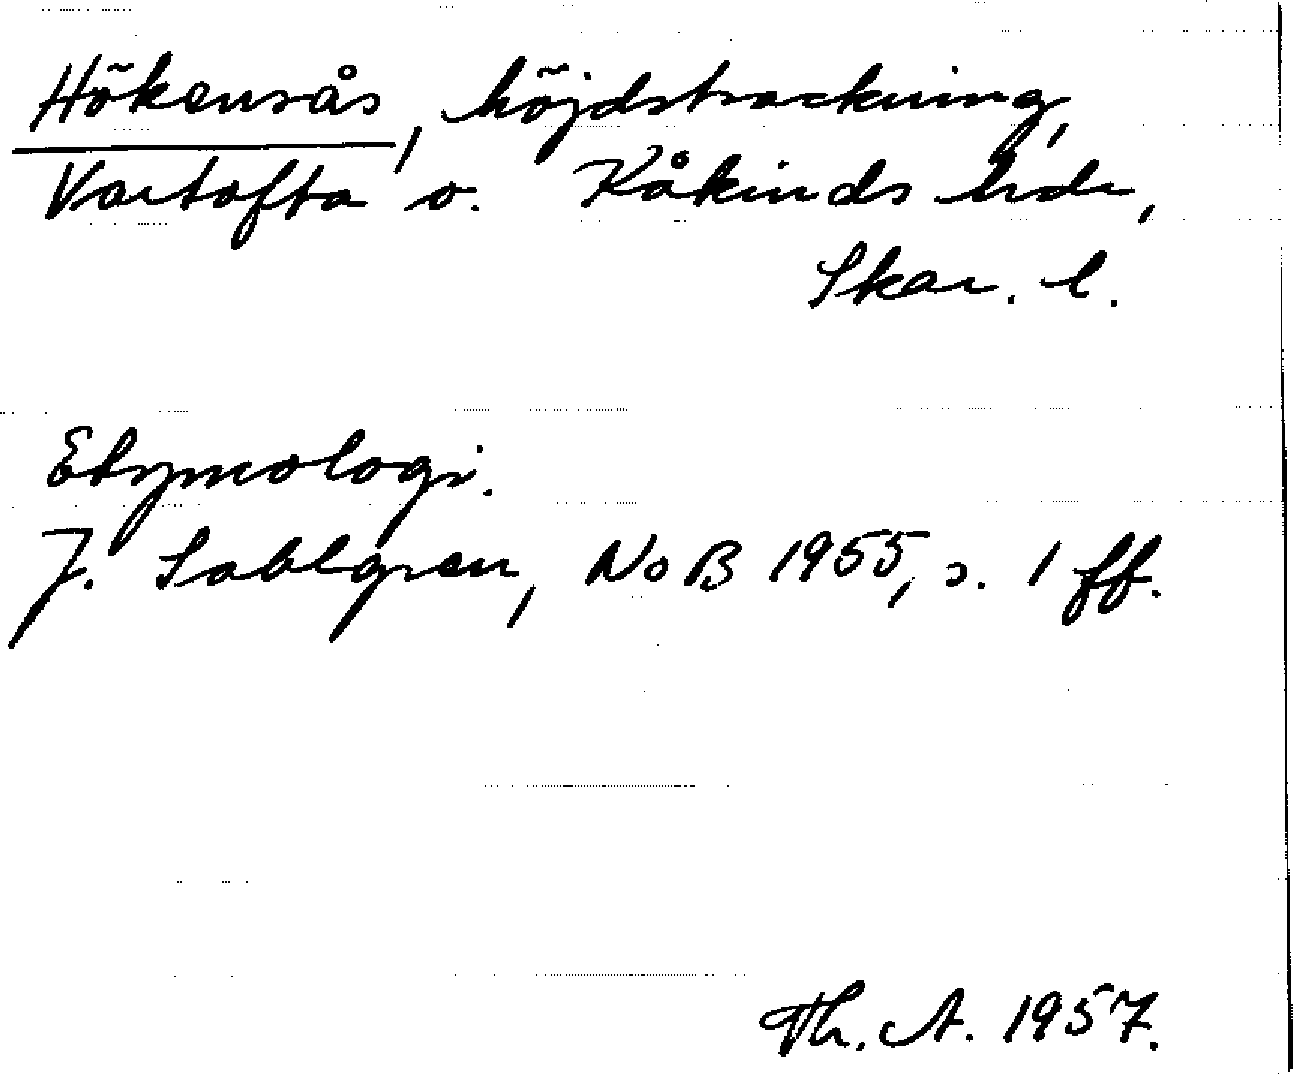 Hökensås, höjdsträckning,
Vartofta o. Kåkinds hrdr,
Skar. l.
Etymologi.
J. Sahlgren, NoB 1955, s. 1 ff.
Th. A. 1957.